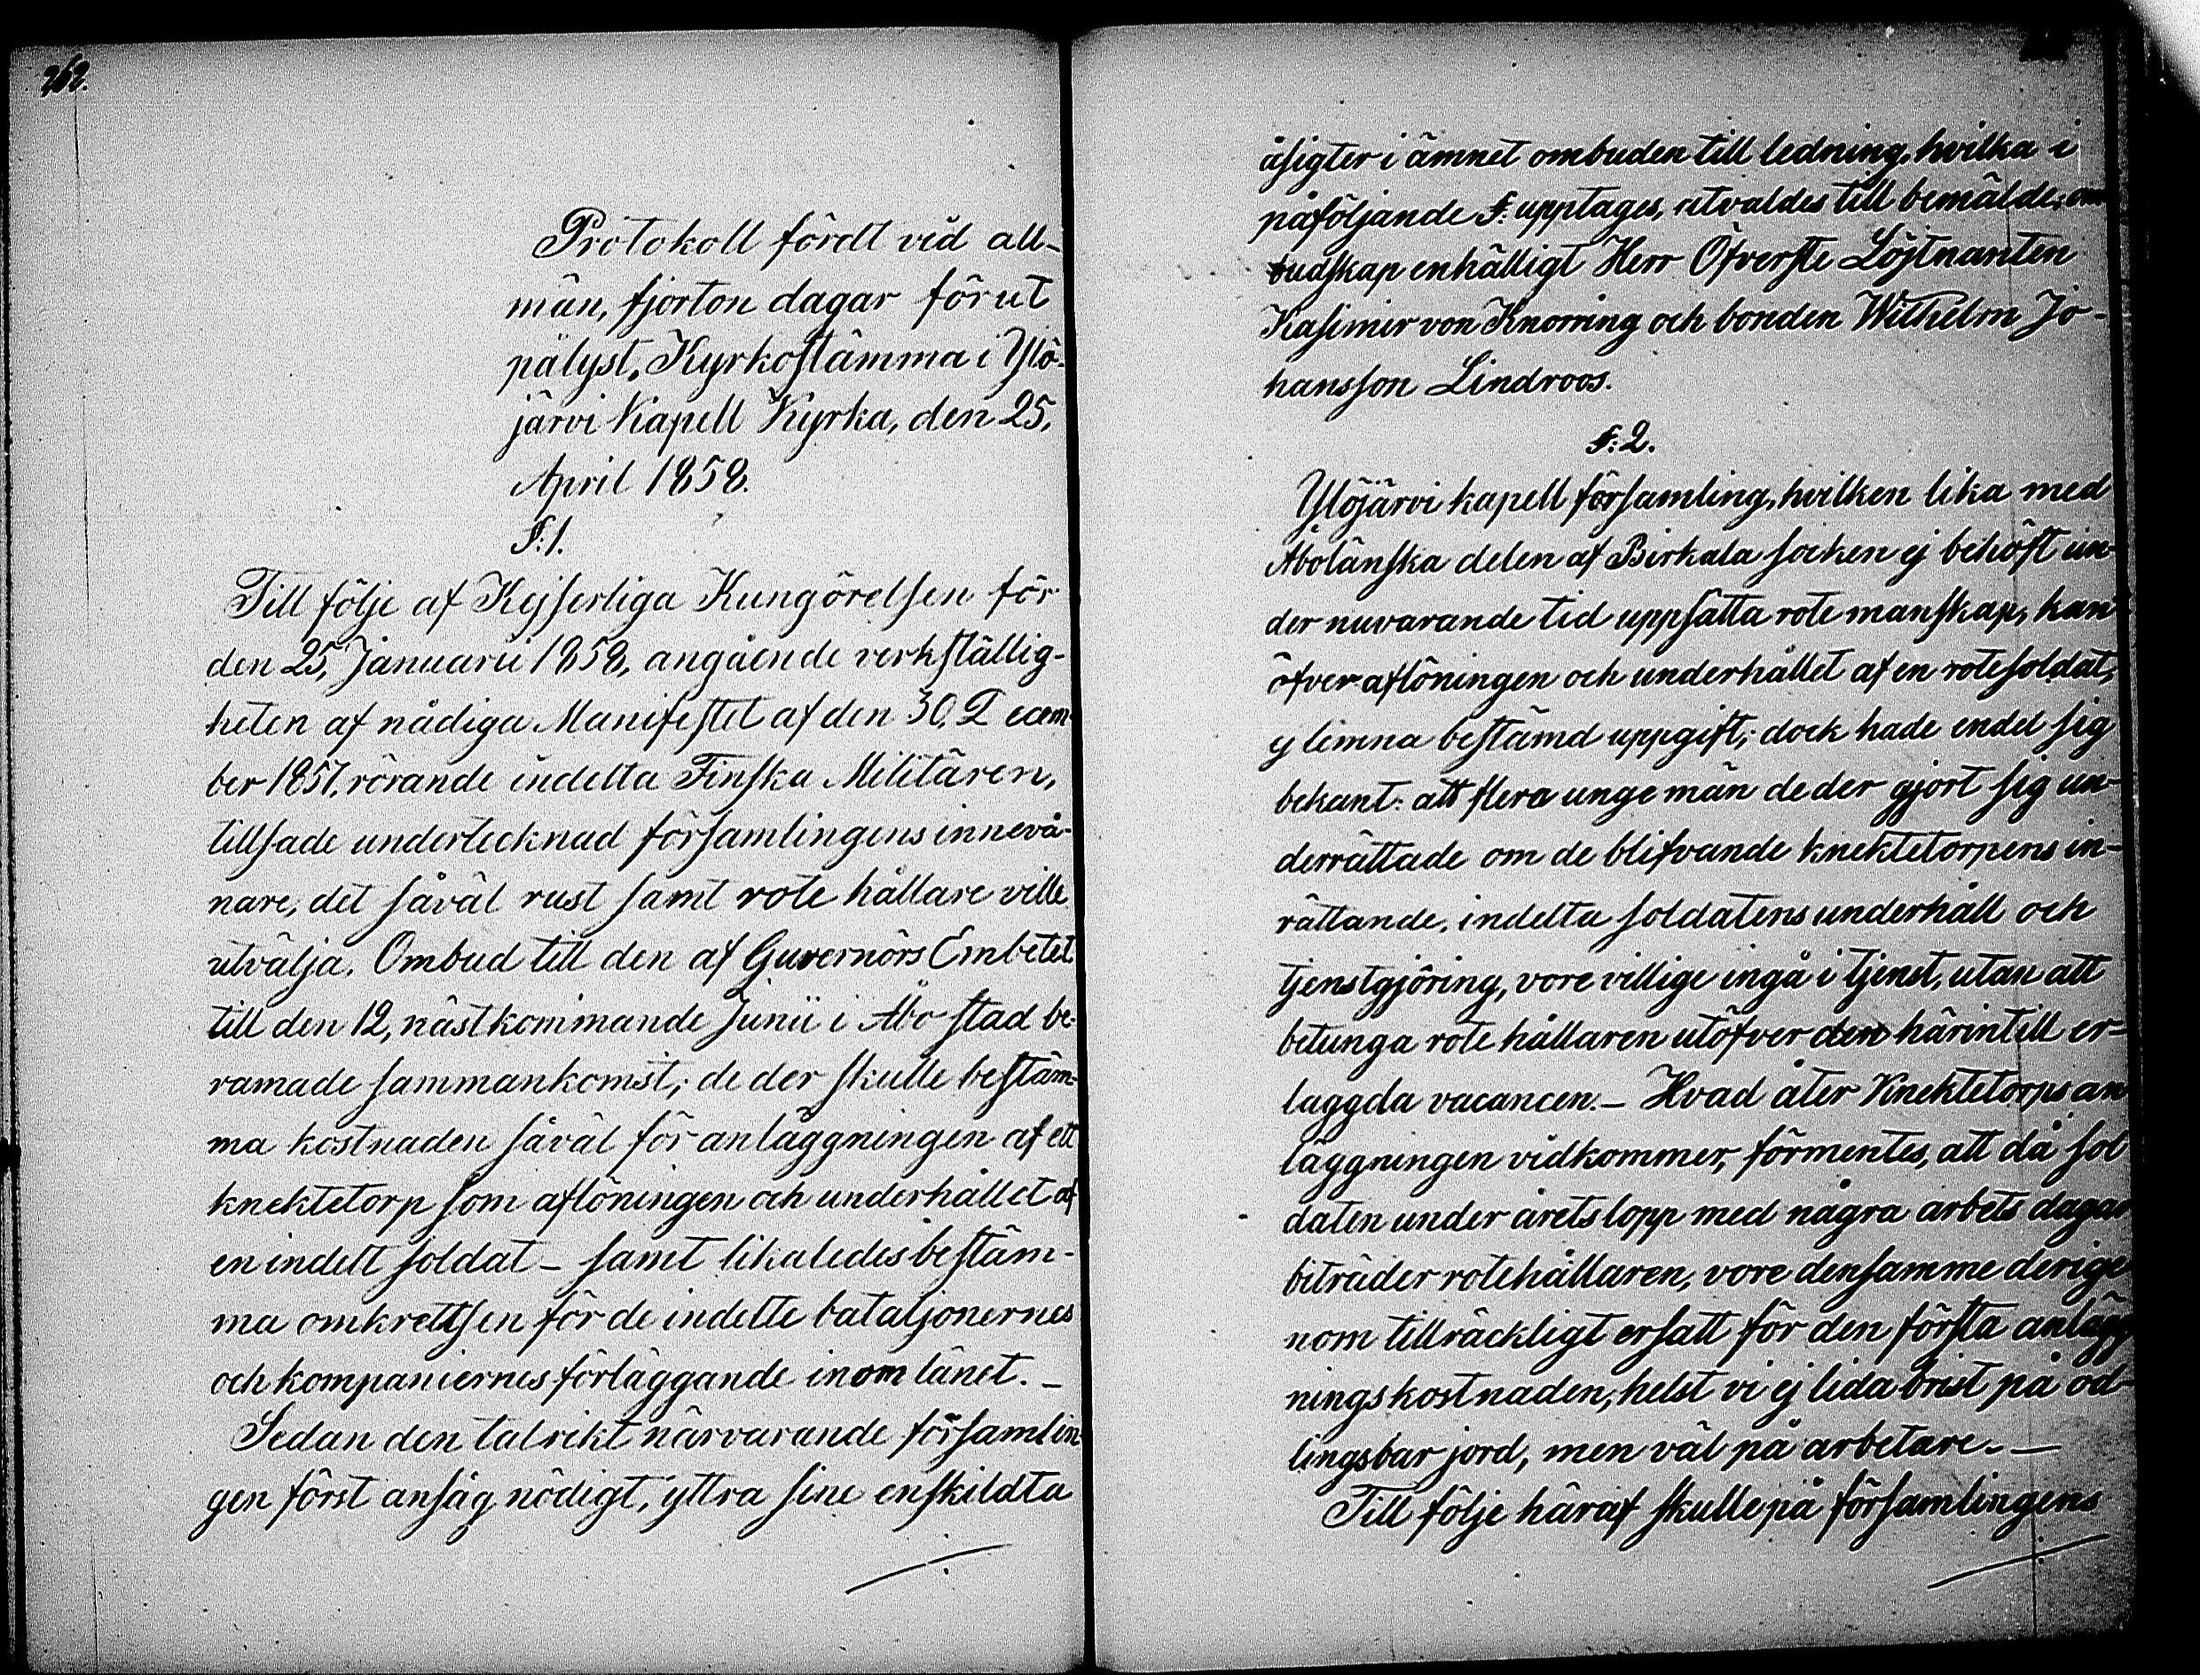 262.
Protokoll fördt vid all-
män, fjorton dagar förut
pålyst, Kyrkostämma i Ylö-
järvi Kapell Kyrka, den 25,
April 1858.
§:1.
Till följe af Kejserliga Kungörelsen för
den 25, Januarii 1858, angående verkställig-
heten af nådiga Manifestet af den 30, Decem-
ber 1857, rörande indelta Finska Militären,
tillsade undertecknad församlingens innevå-
nare, det såväl rust samt rote hållare ville
utvälja. Ombud till den af Guvernörs Embetet
till den 12, nästkommande Junii i Åbo stad be-
ramade sammankomst; de der skulle bestäm-
ma kostnaden såväl för anläggningen af ett
knektetorp som aflöningen och underhållet af
en indelt soldat – samt likaledes bestäm-
ma omkrettsen för de indelte bataljonernes
och kompaniernes förläggande inom länet. –
Sedan den talrikt närvarande församlin-
gen först ansåg nödigt, yttra sine enskildta
åsigter i ämnet ombuden till ledning, hvilka i
påföljande §: upptages, utvaldes till bemälde om
budskap enhälligt Herr Öfverste Löjtnanten
Kasimir von Knorring och bonden Wilhelm Jo-
hansson Lindroos.
§:2.
Ylöjärvi kapell församling, hvilken lika med
Åbolänska delen af Birkala socken ej behöft un-
der nuvarande tid uppsätta rote manskap, kan
öfver aflöningen och underhållet af en rotesoldat,
ej lemna bestämd uppgift; dock hade endel sig
bekant: att flera unge män de der gjort sig un-
derrättade om de blifvande knektetorpens in-
rättande, indelta soldatens underhåll och
tjenstgjöring, vore villige ingå i tjenst, utan att
betunga rote hållaren utöfver den härintill er-
laggda vacancen. – Hvad åter Knektetorps an
läggningen vidkommer, förmentes, att då sol
daten under årets lopp med några arbets dagar
biträder rotehållaren, vore densamme derige
nom tillräckligt ersatt för den första anlägg
ningskostnaden, helst vi ej lida brist på od-
lingsbar jord, men väl på arbetare. –
Till följe häraf skulle på församlingens